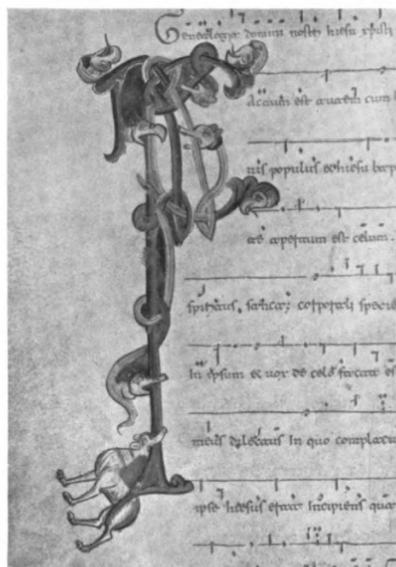 Genealogia domini nostri hiesu xpisti
actum est autem cum
nis populus et hiesu bap
apertum est celum.
spiritus. corporali specie
In ipsum et uox de celo facta es
meus dilectus In quo complacu
ipse hiesus erat Incipiens qua